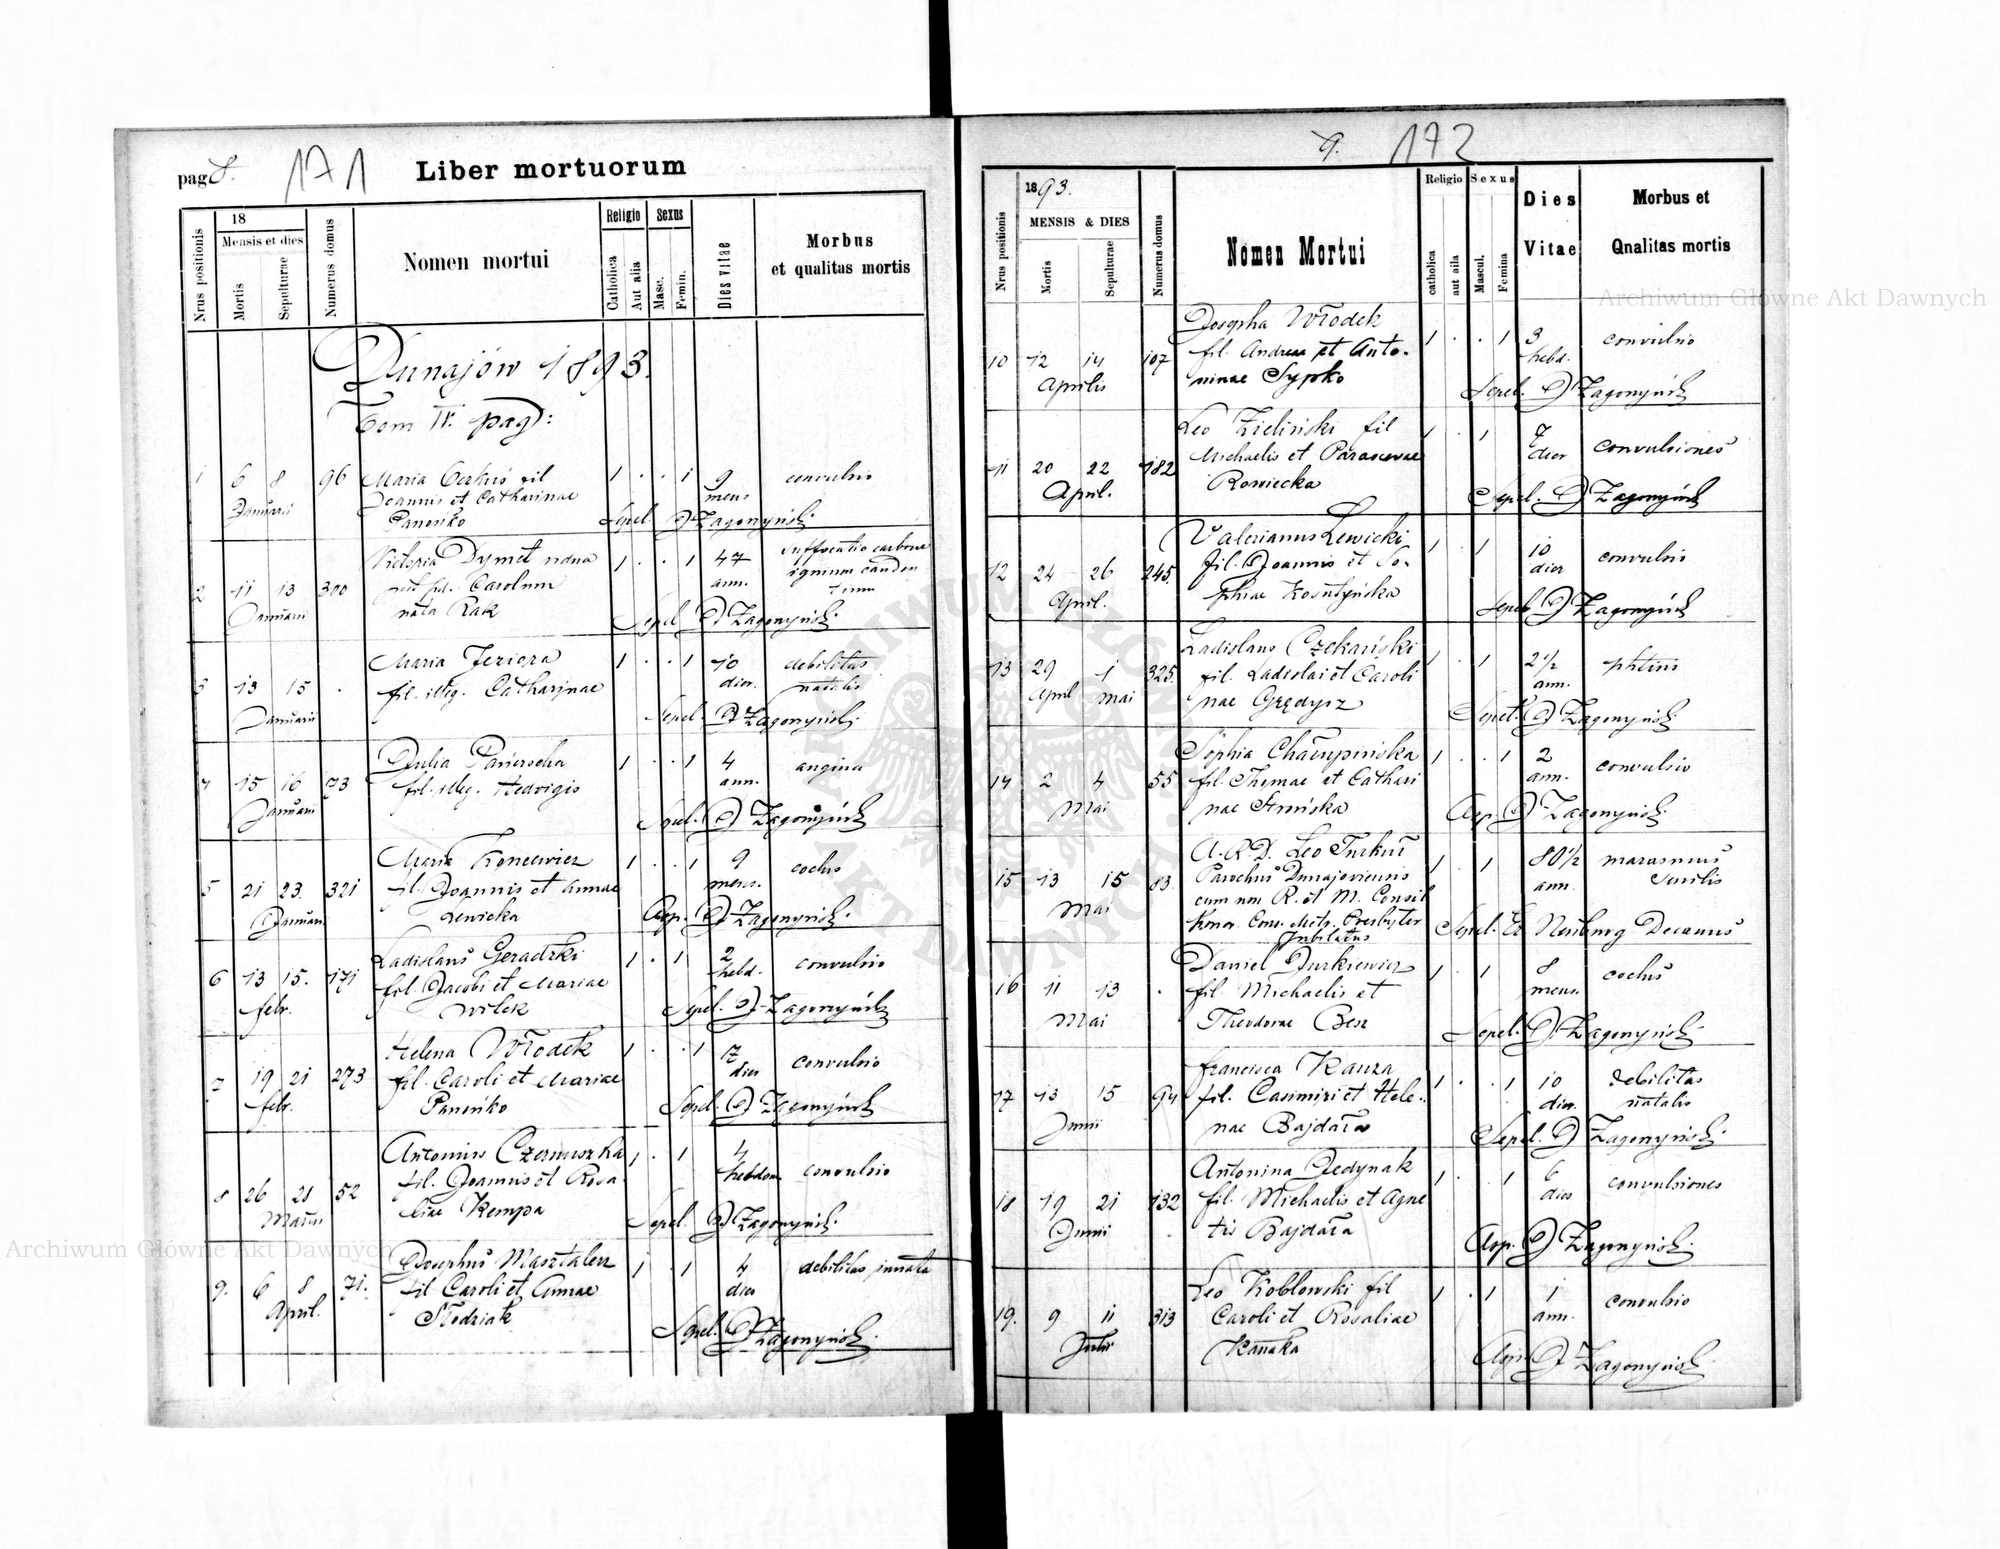 pag 8. 171 Liber mortuorum
Nrus positionis
18
Mensis et dies
Mortis
Sepulturae
Numerus domus
Nomen mortui
Religio
Catholica
Aut alia
Sexus
Masc.
Femin.
Dies vitae
Morbus
et qualitas mortis
Dunajów 1893.
Tom IV. pag:
1 6 8 96 Maria fil 1 . . 1 9 convulsio
Januarii Joannis et Catharinae mens
Panońko Sepel. J Zagonyński.
2 11 13 300 Victoria Dymet vidua 1 . . 1 47 suffocatio carbone
Januarii Carolum ann. ignium canden
nata Rak tium
Sepel J Zagonyński.
3 13 15 . Maria Jeziora 1 . . 1 10 debilitas
Januarii fil. illeg. Catharinae dier. natalis
Sepel. J Zagonyński.
4 15 16 73 Julia 1 . . 1 4 angina
Januarii fil. illeg. Hedvigis ann.
Sepel. J Zagonyński
5 21 23. 321 Maria Koncewicz 1 . . 1 9 coclus
Januarii fil. Joannis et Annae mens.
Lewicka Asp. J Zagonyński.
6 13 15. 171 Ladislaus Geradzki 1 . 1 2 convulsio
febr. fil. Jacobi et Mariae hebd.
Wilck Sepel. J Zagonyński
7 19 21 273 Helena Włodek 1 . . 1 7 convulsio
febr. fil. Caroli et Mariae dier
Panońko Sepel. J Zagonyński
8 26 28 52 Antonius Czermuszka 1 . 1 4 convulsio
Martii fil. Joannis et Rosa hebdom
liae Kempa Sepel. J Zagonyński.
9. 6 8 71. Josephus Masztalerz 1 . 1 4 debilitas innata
April. fil Caroli et Annae dier
Słodziak Sepel. J Zagonyński.
9. 172
Nrus positionis
1893.
MENSIS & DIES
Mortis
Sepulturae
Numerus domus
Nomen Mortui
Religio
catholica
aut aila
Sexus
Mascul.
Femina
Dies
Vitae
Morbus et
Qnalitas mortis
Josepha Włodek
10 12 14 107 fil. Andreae et Anto- 1 . . 1 3 convulsio
Aprilis ninae Sypko hebd.
Sepel. J Zagonyński
Leo Zieliński fil 1 . 1 7 convulsiones
11 20 22 182 Michaelis et Parascevae dier
April. Rowiecka Sepel. J Zagonyński
Valerianus Lewicki 1 . 1 10 convulsio
12 24 26 245. fil. Joannis et So- dier
April. phiae Kosutyńska Sepel J Zagonyński
Ladislaus Czekański 1 . 1 2 1/2 phtisis
13 29 1 325. fil. Ladislai et Caroli ann.
April Mai nae Grędysz Sepel. J Zagonyński.
Sophia 1 . . 1 2 convulsio
14 2 4 55 fil. Thomae et Cathari ann.
Mai nae Asp. J Zagonyński.
A. R. D. Leo Turkuł 1 . 1 80 1/2 marasmus
15 13 15 83. Parochus Dunajoviensis ann. Senilis
Mai cum non R. et M. Consil
honor. Cons. Metr. Presbyter Sepel. Neuburg Decanus
Jubilatus
Daniel Jurkiewicz 1 . 1 8 coclus
16 11 13 . fil. Michaelis et mens.
Mai Theodorae Besz Sepel. J Zagonyński.
Francisca Kanza 1 . . 1 10 debilitas
17 13 15 94 fil. Casimiri et Hele- dier. natalis
Junii nae Bajdała Sepel. J Zagonyński.
Antonina Jedynak 1 . 1 6 convulsiones
18 19 21 132 fil. Michaelis et Agne dies
Junii tis Bajdała Asp. J Zagonyński.
Leo Kobłowski fil 1 . 1 1 convulsio
19. 9 11 313 Caroli et Rosaliae ann.
Julii Kanaka Asp. J Zagonyński.
Archiwum Główne Akt Dawnych
Archiwum Główne Akt Dawnych
ARCHIWUM GŁÓWNE AKT DAWNYCH